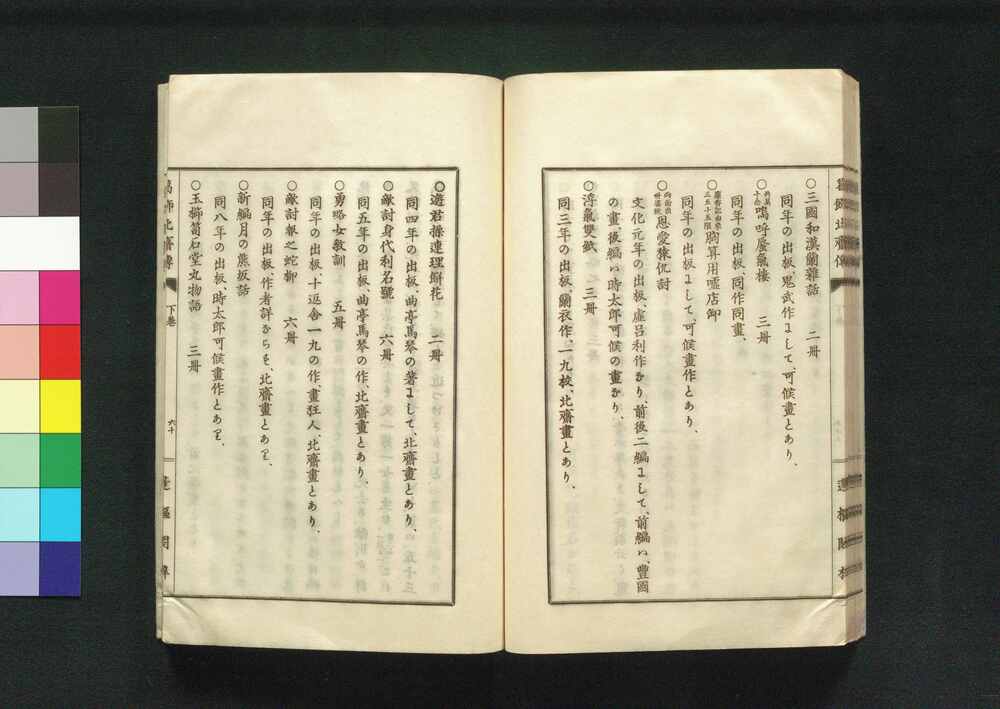 ○三國和漢蘭雜話　二冊
同年の出板、鬼武作にして、可候畫とあり、
○嗚呼蜃氣樓　三冊
同年の出板、同作同畫、
○胸算用嘘店卸
同年の出板にして、可候畫作とあり、
○恩愛猿仇討
文化元年の出板、虛呂利作なり、前後二編にして、前編ハ、豐國
の畫、後編ハ、時太郎可候の畫なり、
○浮氣雙紙　三冊
同三年の出板、蘭衣作、一九校、北齋畫とあり、
○遊君操連理餅花　二冊
同四年の出板、曲亭馬琴の著にして、北齋畫とあり、
○敵討身代利名號　六冊
同五年の出板、曲亭馬琴の作、北齋畫とあり、
○勇略女敎訓　五冊
同年の出板、十返舍一九の作、畫狂人、北齋畫とあり、
○敵討報之蛇柳　六冊
同年の出板、作者詳ならず、北齋畫とあり、
○新編月の熊坂話
同八年の出板、時太郎可候畫作とあり、
○玉櫛笥石堂丸物語　三冊
葛飾北齋傳
下卷
六十
蓬樞閣梓